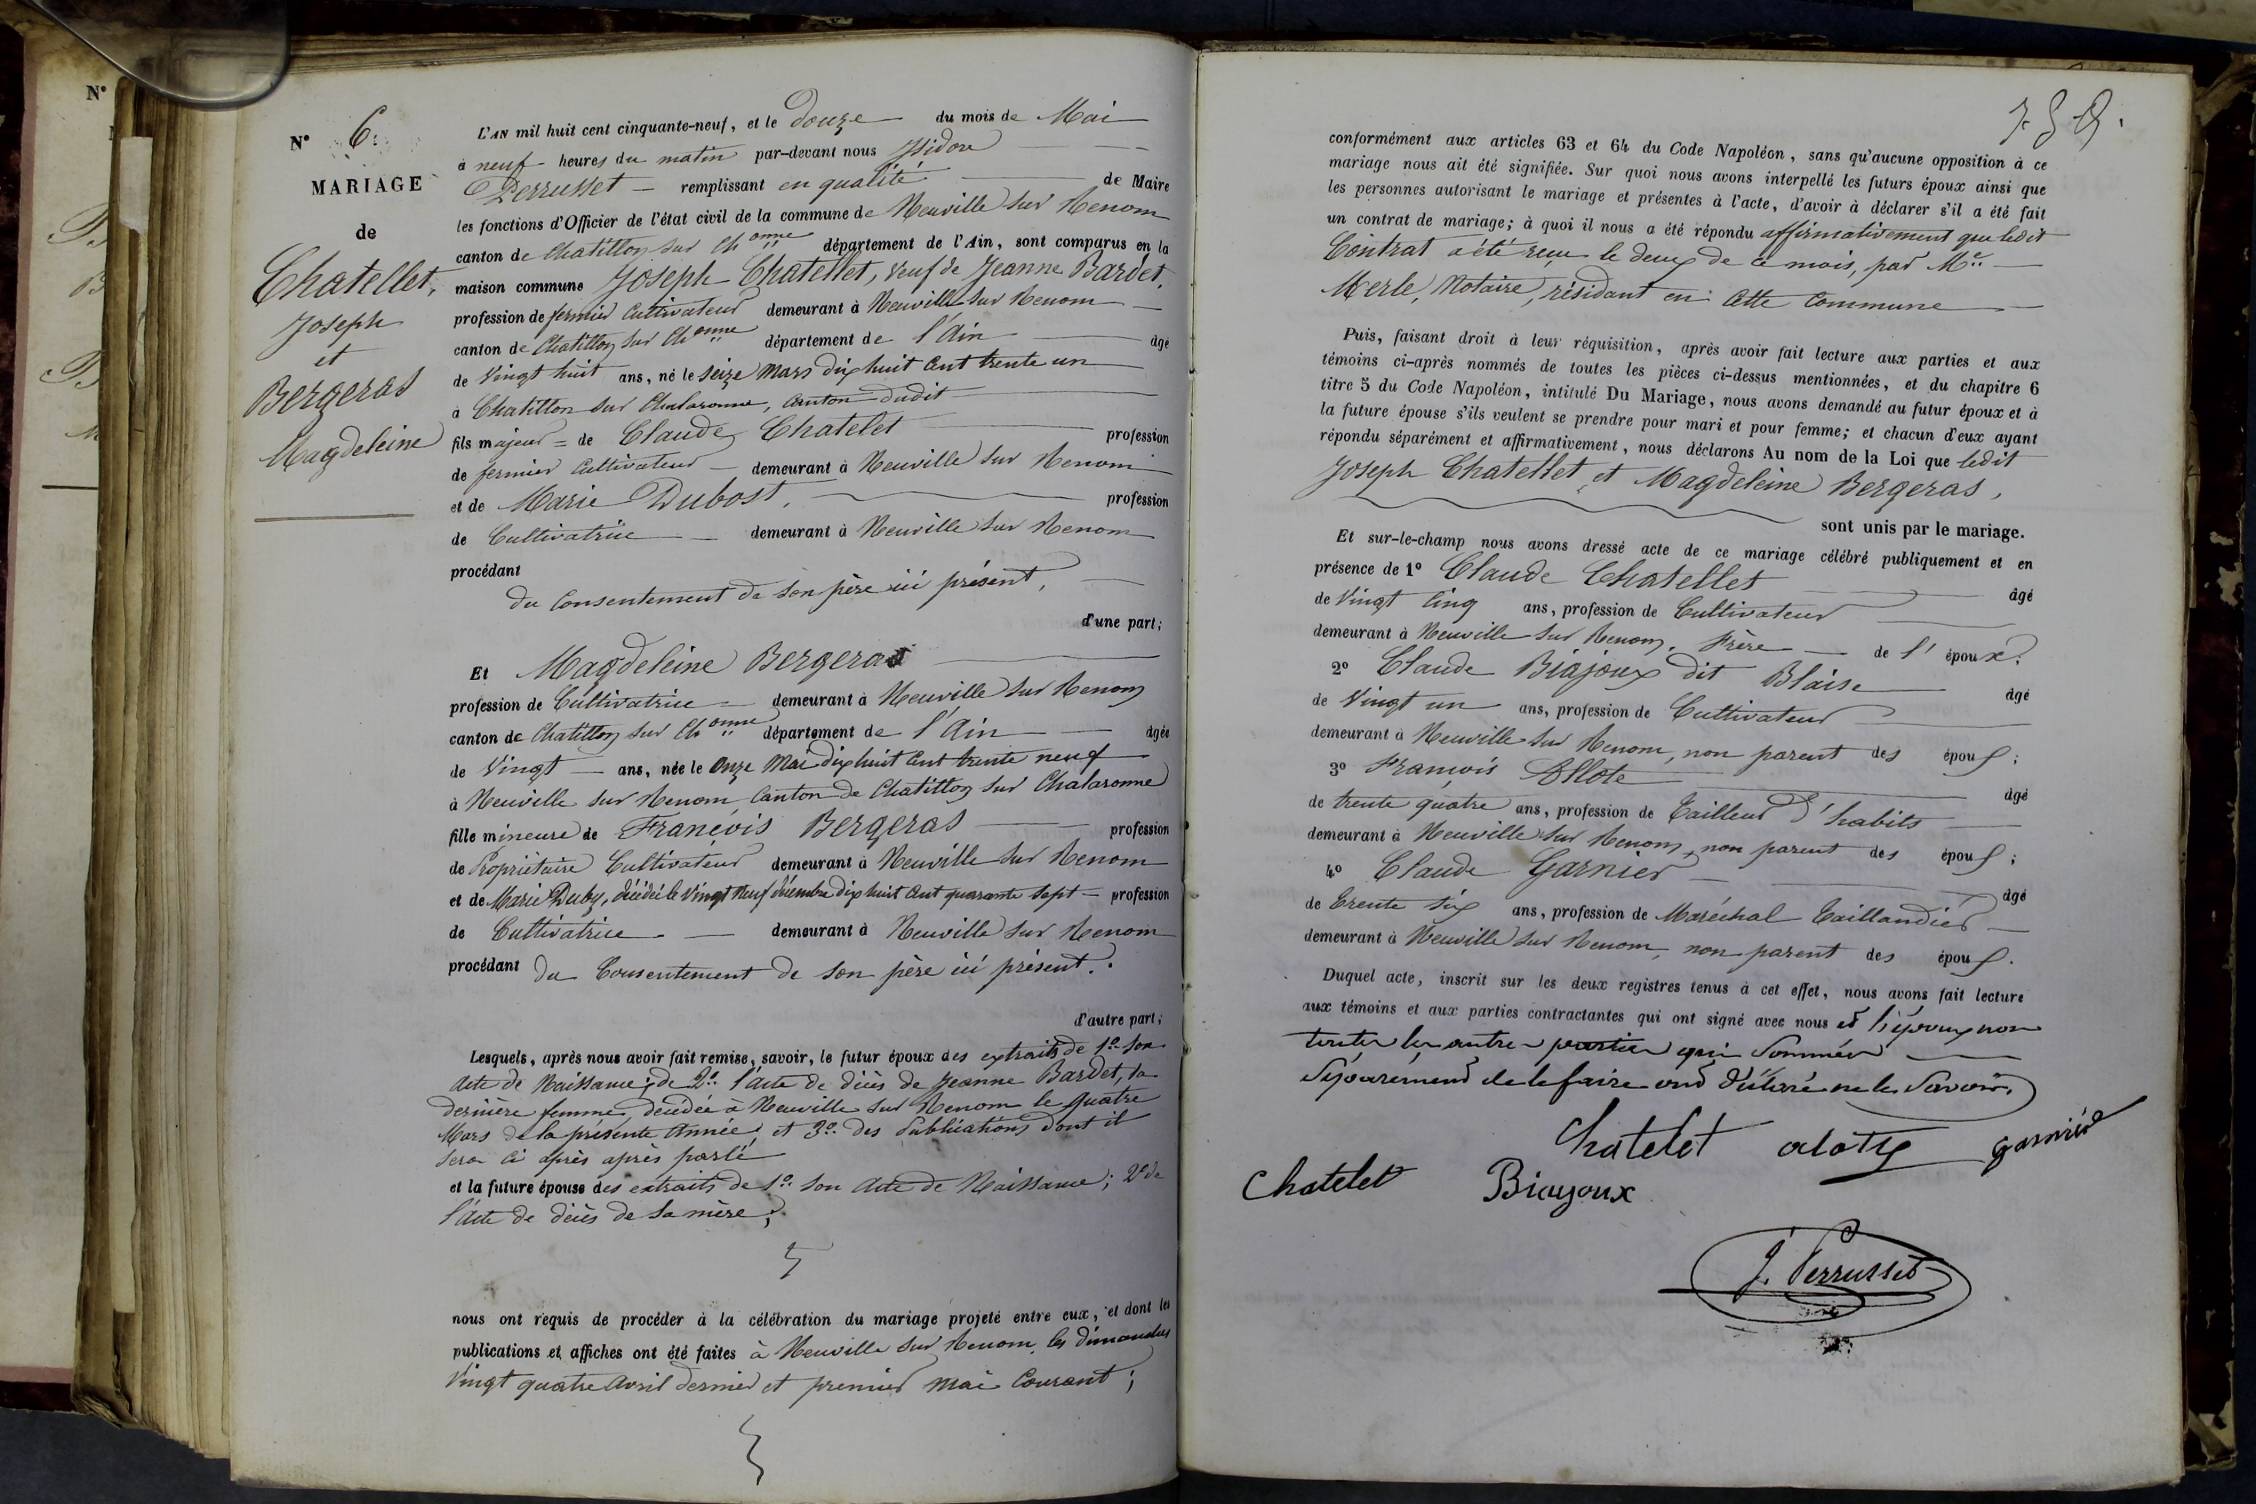 N°
N° 6.
MARIAGE
de
Chatellet,
Joseph
et
Bergeras
Magdeleine
L'AN mil huit cent cinquante-neuf, et le douze du mois de Mai
à neuf heures du matin par-devant nous Isidore
Perrusset remplissant en qualité de Maire
les fonctions d'Officier de l'état civil de la commune de Neuville sur Renom
canton de Chatillon sur Chonne département de l'Ain, sont comparus en la
maison commune Joseph Chatellet, veuf de Jeanne Bardet,
profession de fermier Cultivateur demeurant à Neuville sur Renom
canton de Chatillon sur Chonne département de l'Ain âgé
de Vingt huit ans, né le seize Mars dix huit cent trente un
à Chatillon sur Chalaronne, canton dudit
fils majeur de Claude Chatelet profession
de fermier Cultivateur demeurant à Neuville sur Renom
et de Marie Dubost, profession
de Cultivatrice demeurant à Neuville sur Renom
procédant
du Consentement de son père ici présent,
d'une part;
Et Magdeleine Bergeras
profession de Cultivatrice demeurant à Neuville sur Renom
canton de Chatillon sur Chonne département de l'Ain âgée
de Vingt ans, née le onze Mai dix huit cent trente neuf
à Neuville sur Renom Canton de Chatillon sur Chalaronne
fille mineure de François Bergeras profession
de Propriétaire Cultivateur demeurant à Neuville sur Renom
et de Marie Duby, décédée le Vingt Neuf décembre dix huit cent quarante sept profession
de Cultivatrice demeurant à Neuville sur Renom
procédant du Consentement de son père ici présent.
d'autre part;
Lesquels, après nous avoir fait remise, savoir, le futur époux des extraits de 1° son
acte de Naissance; de 2° l'acte de décès de Jeanne Bardet, sa
dernière femme, décédée à Neuville sur Renom le quatre
Mars de la présente Année; et 3° des Publications dont il
sera ci après après parlé
et la future épouse des extraits de 1° son acte de Naissance; 2° de
l'acte de décès de sa mère;
nous ont requis de procéder à la célébration du mariage projeté entre eux, et dont les
publications et affiches ont été faites à Neuville sur Renom, les dimanches
Vingt quatre Avril dernier et premier mai Courant;
conformément aux articles 63 et 64 du Code Napoléon, sans qu'aucune opposition à ce
mariage nous ait été signifiée. Sur quoi nous avons interpellé les futurs époux ainsi que
les personnes autorisant le mariage et présentes à l'acte, d'avoir à déclarer s'il a été fait
un contrat de mariage; à quoi il nous a été répondu affirmativement que ledit
Contrat a été reçu le deux de ce mois, par Me.
Merle, Notaire, résidant en cette Commune
Puis, faisant droit à leur réquisition, après avoir fait lecture aux parties et aux
témoins ci-après nommés de toutes les pièces ci-dessus mentionnées, et du chapitre 6
titre 5 du Code Napoléon, intitulé Du Mariage, nous avons demandé au futur époux et à
la future épouse s'ils veulent se prendre pour mari et pour femme; et chacun d'eux ayant
répondu séparément et affirmativement, nous déclarons Au nom de la Loi que ledit
Joseph Chatellet et Magdeleine Bergeras,
sont unis par le mariage.
Et sur-le-champ nous avons dressé acte de ce mariage célébré publiquement et en
présence de 1° Claude Chatellet âgé
de Vingt Cinq ans, profession de Cultivateur
demeurant à Neuville sur Renom, Frère de l'époux.
2° Claude Biajoux dit Blaise âgé
de Vingt un ans, profession de Cultivateur
demeurant à Neuville sur Renom, non parent des époux;
3° François Allote âgé
de trente quatre ans, profession de Tailleur d'habits
demeurant à Neuville sur Renom, non parent des époux;
4° Claude Garnier âgé
de Trente Six ans, profession de Maréchal Taillandier
demeurant à Neuville sur Renom, non parent des époux.
Duquel acte, inscrit sur les deux registres tenus à cet effet, nous avons fait lecture
aux témoins et aux parties contractantes qui ont signé avec nous et l'époux non
toutes les autres parties qui Sommées
Séparément de le faire ont déclaré ne le Savoir.
Chatelet alote garnier
Chatelet Biayoux
J. Perrusset